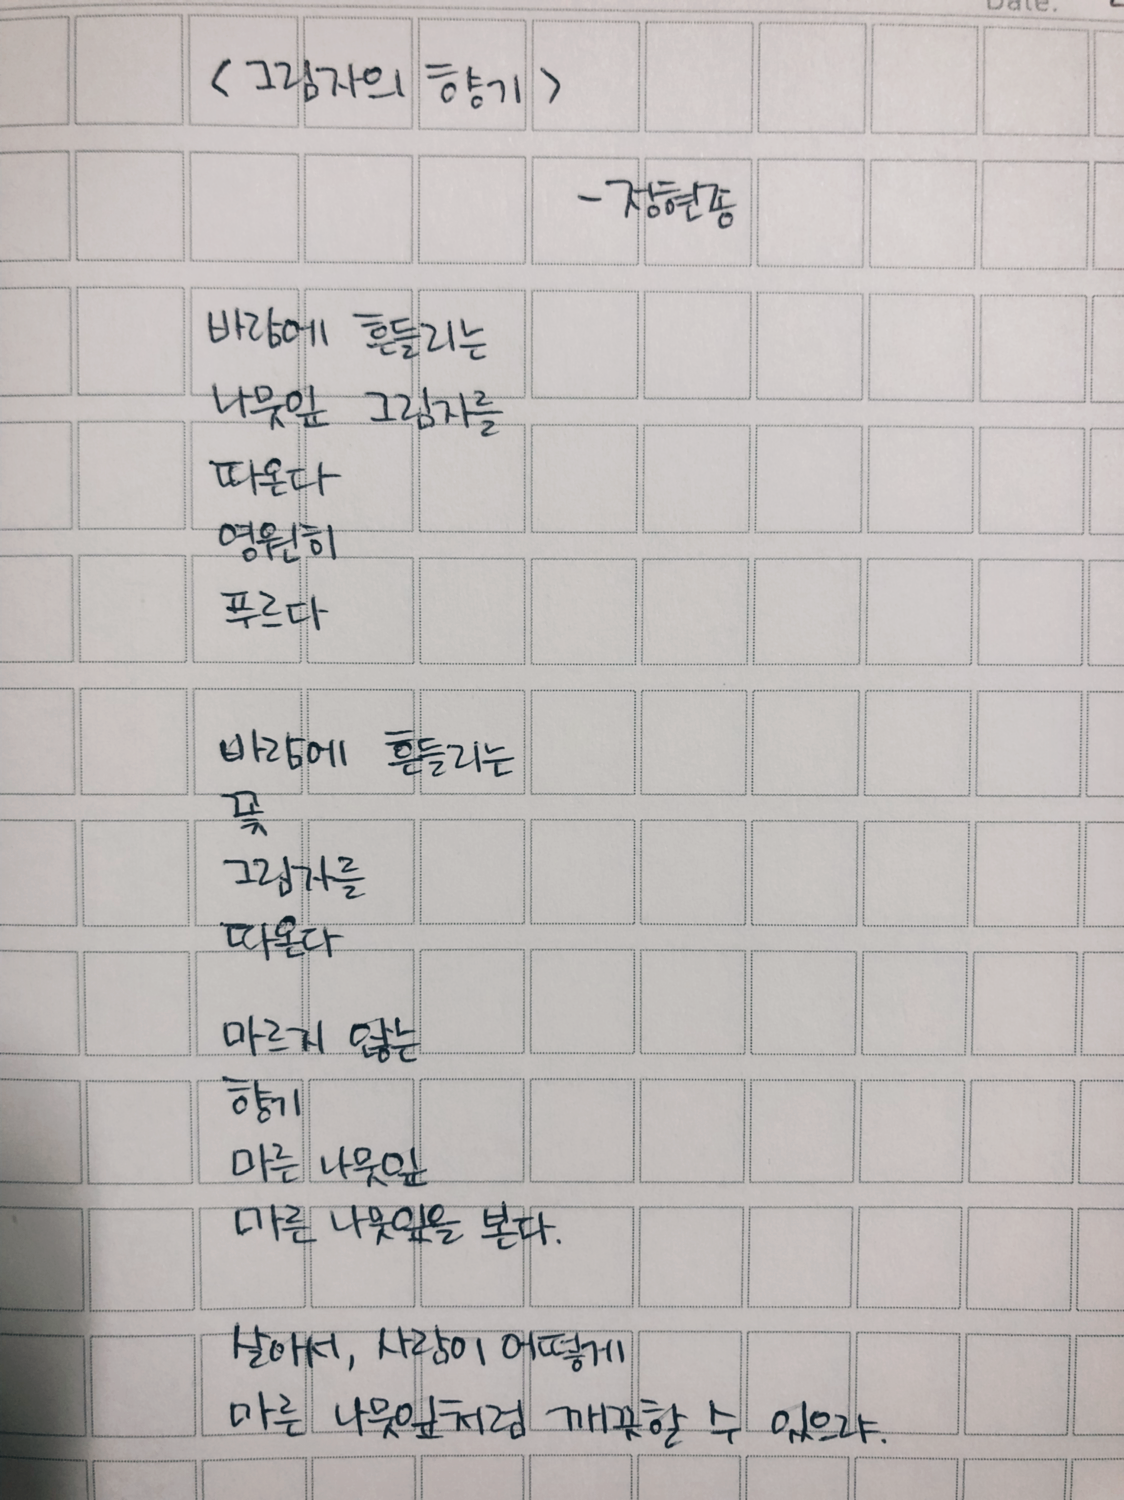 Date.
<그림자의 향기>
-정현종
바람에 흔들리는
나뭇잎 그림자를
따온다
영원히
푸르다
바람에 흔들리는
꽃
그림자를
따온다
마르지 않는
향기
마른 나뭇잎
마른 나뭇잎을 본다.
살아서, 사람이 어떻게
마른 나뭇잎처럼 깨끗할 수 있으랴.